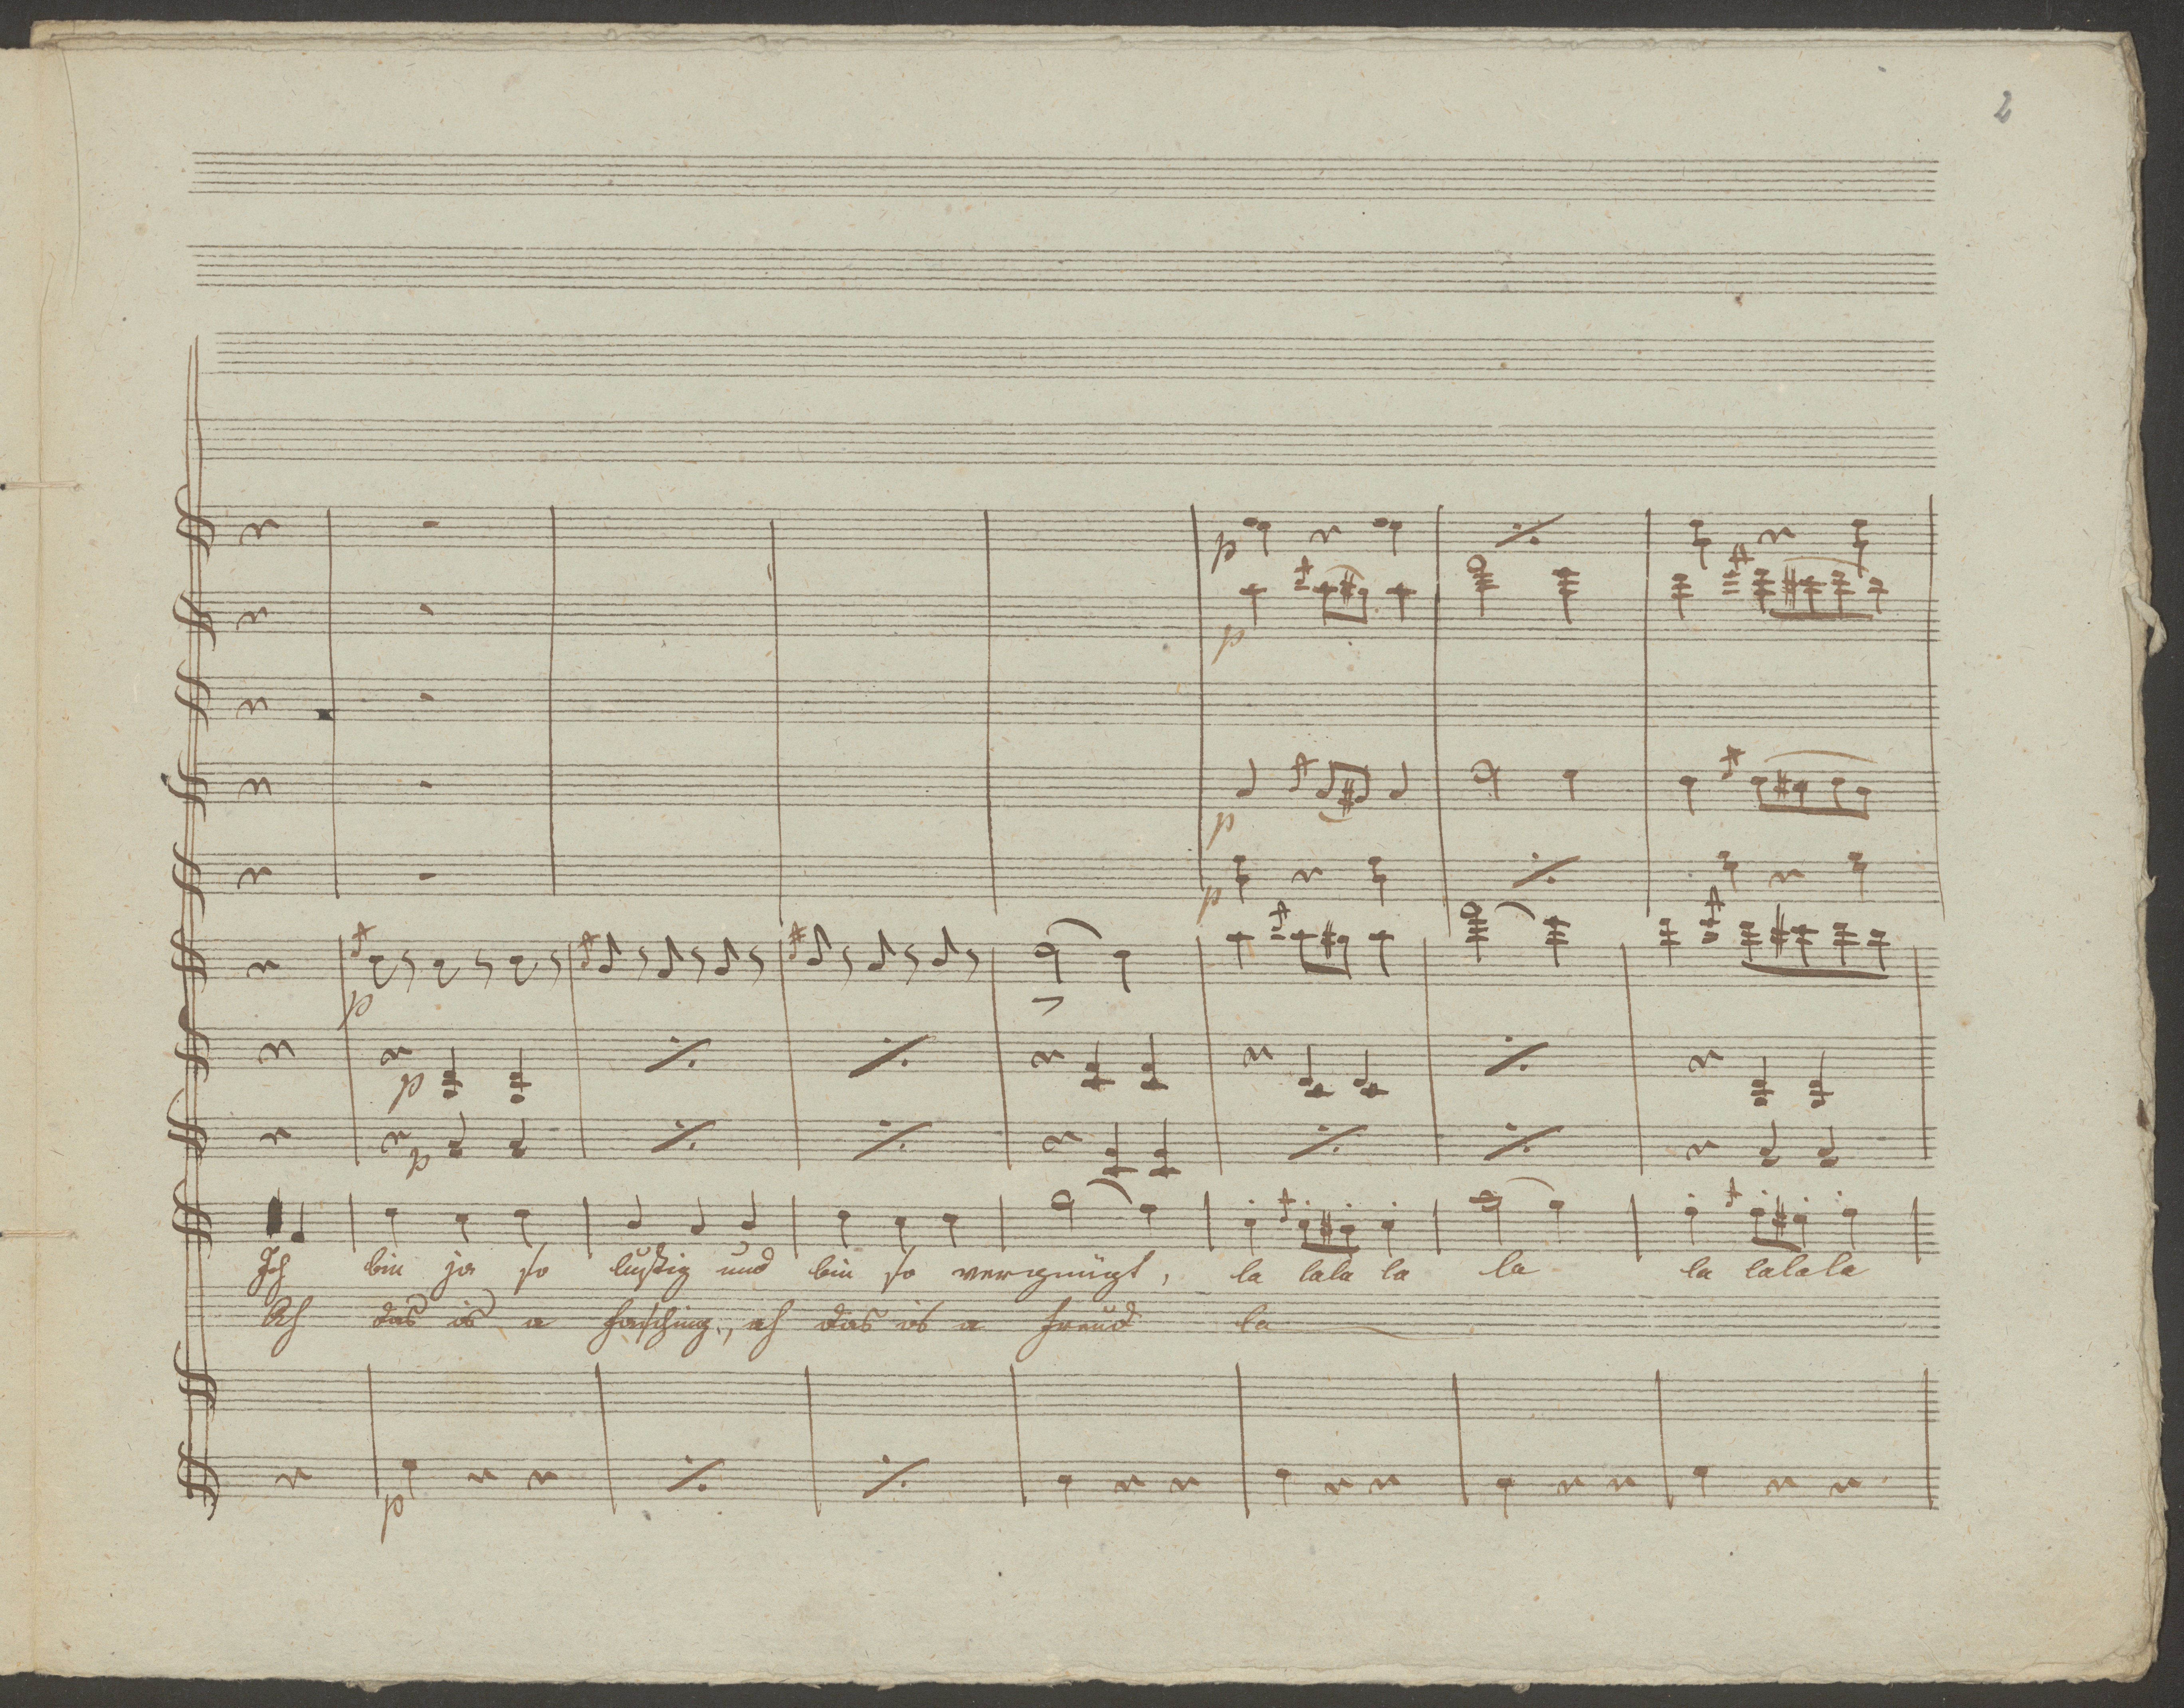 2
p
p
p
p
p
p
p
Ich bin ja so lustig und bin so vergnügt, la lala la la la lalala
Ah das is a Fasching, ah das is a Freud la
p